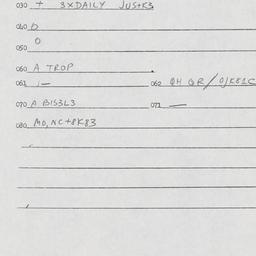 030 + 3XDAILY JUS+K3
040 0
0
050
060 A TROP
061 1- 062 QH QR/0JK81C
070 A BIS3L3 071 —
080 MO, NC+8K83